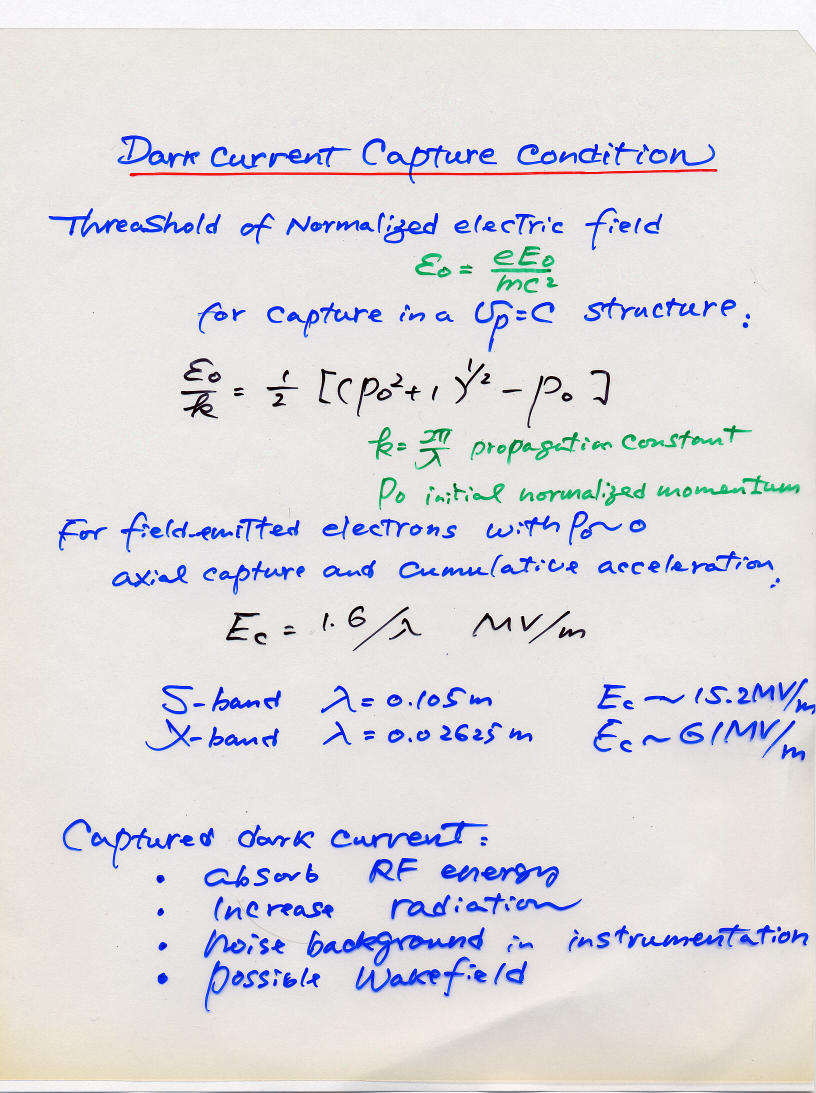 Dark Current Capture Condition
Threashold of Normalized electric field
ε₀ = eE₀/mc²
for capture in a υp=c structure:
ε₀/k = 1/2 [(p₀²+1)^1/2 − p₀]
k = 2π/λ propagation constant
p₀ initial normalized momentum
For field-emitted electrons with p₀~0
axial capture and cumulative acceleration:
Ec = 1.6/λ MV/m
S-band λ = 0.105 m Ec ~ 15.2 MV/m
X-band λ = 0.02625 m Ec ~ 61 MV/m
Captured dark current:
• absorb RF energy
• Increase radiation
• noise background in instrumentation
• possible Wakefield